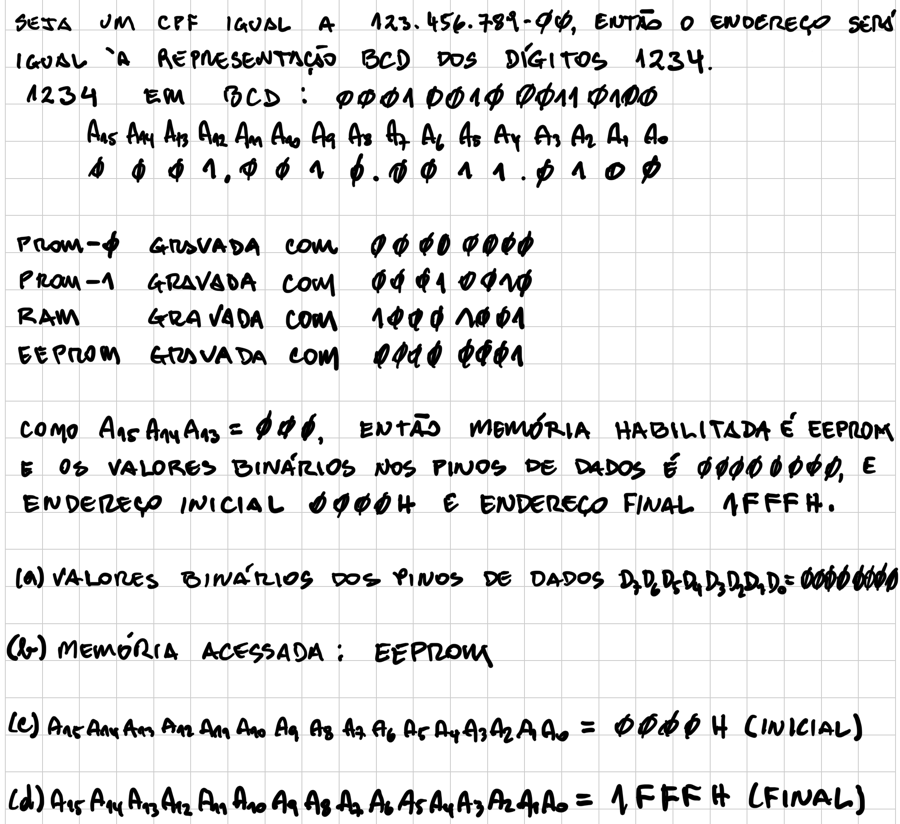 SEJA UM CPF IGUAL A 123.456.789-00, ENTÃO O ENDEREÇO SERÁ
IGUAL À REPRESENTAÇÃO BCD DOS DÍGITOS 1234.
1234 EM BCD : 0001 0010 0011 0100
A15 A14 A13 A12 A11 A10 A9 A8 A7 A6 A5 A4 A3 A2 A1 A0
0 0 0 1. 0 0 1 0. 0 0 1 1. 0 1 0 0
PROM-0 GRAVADA COM 0000 0000
PROM-1 GRAVADA COM 0001 0010
RAM GRAVADA COM 1000 1001
EEPROM GRAVADA COM 0000 0001
COMO A15 A14 A13 = 000, ENTÃO MEMÓRIA HABILITADA É EEPROM
E OS VALORES BINÁRIOS NOS PINOS DE DADOS É 00000000, E
ENDEREÇO INICIAL 0000H E ENDEREÇO FINAL 1FFFH.
(a) VALORES BINÁRIOS DOS PINOS DE DADOS D7D6D5D4D3D2D1D0= 0000 0000
(b) MEMÓRIA ACESSADA : EEPROM
(c) A15 A14 A13 A12 A11 A10 A9 A8 A7 A6 A5 A4 A3 A2 A1 A0 = 0000 H (INICIAL)
(d) A15 A14 A13 A12 A11 A10 A9 A8 A7 A6 A5 A4 A3 A2 A1 A0 = 1FFF H (FINAL)